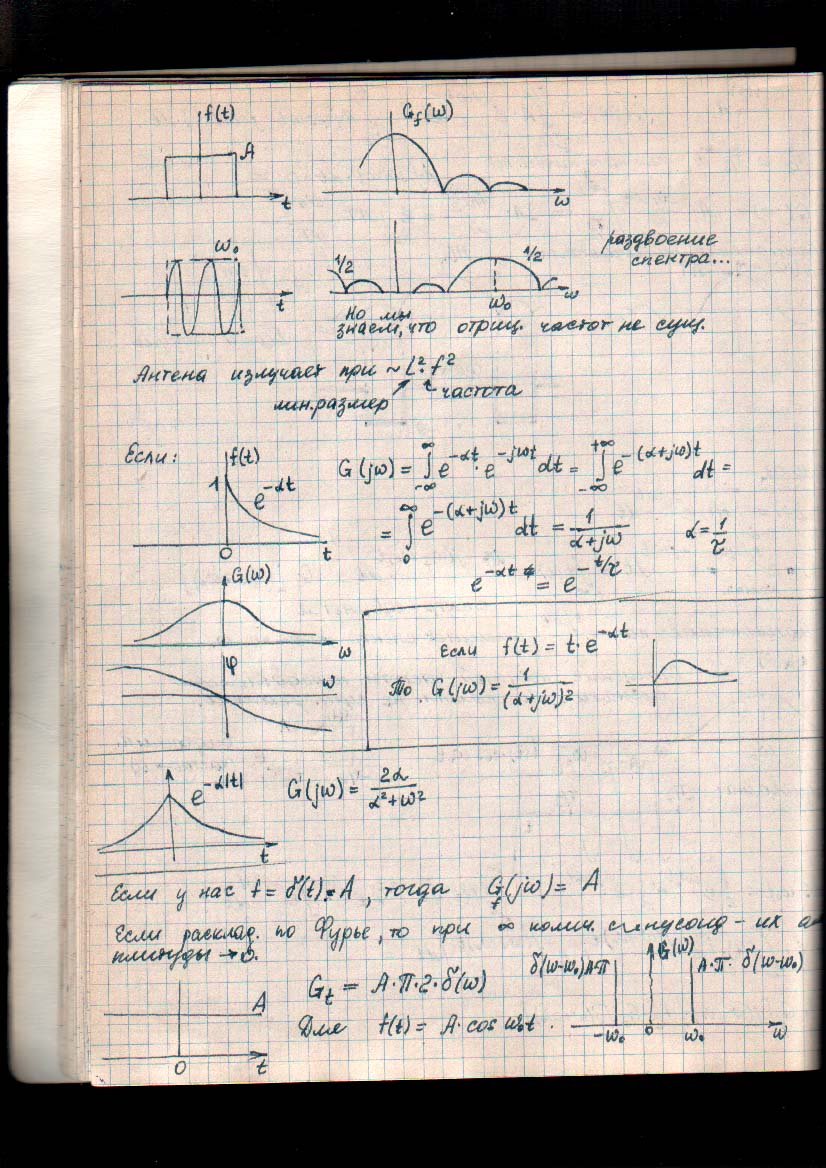 f(t)
A
t
G_f(ω)
ω
ω₀
t
1/2
1/2
ω₀
ω
раздвоение
спектра...
Но мы
знаем, что отриц. частот не сущ.
Антена излучает при ~ L²·f²
мин.размер
частота
Если:
f(t)
1
e^{-αt}
0
t
G(jω) = ∫_{-∞}^{∞} e^{-αt}·e^{-jωt} dt = ∫_{-∞}^{+∞} e^{-(α+jω)t} dt =
= ∫_0^∞ e^{-(α+jω)t} dt = 1/(α+jω) α = 1/τ
e^{-αt} = e^{-t/τ}
G(ω)
ω
φ
ω
Если f(t) = t·e^{-αt}
То G(jω) = 1/(α+jω)²
e^{-α|t|}
t
G(jω) = 2α/(α²+ω²)
Если у нас f = δ(t)·A, тогда G_f(jω) = A
Если расклад. по Фурье, то при ∞ колич. синусоид - их ам
плитуды → 0.
A
0
t
G_t = A·П·2·δ(ω)
Для f(t) = A·cos ω₀t.
δ(ω-ω₀)A·П
G(ω)
A·П·δ(ω-ω₀)
-ω₀
0
ω₀
ω